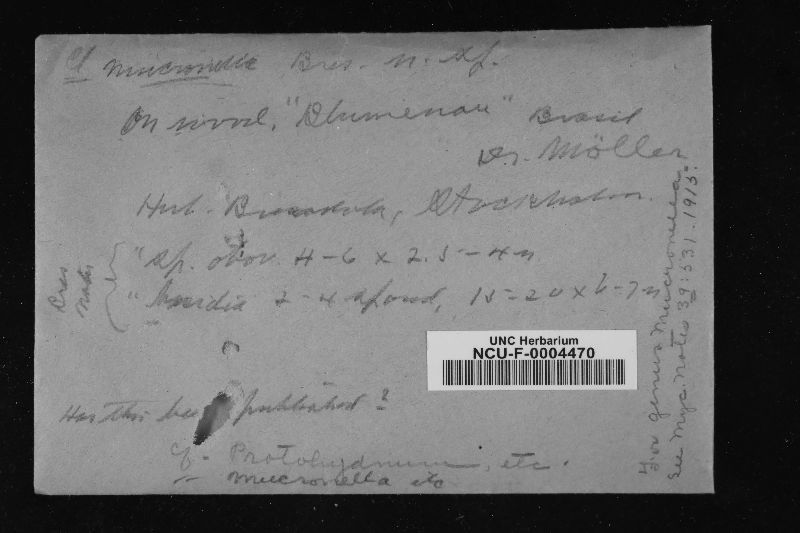 Cf Mucronella Bres. n. sp.
On wood, "Blumenau" Brasil
Dr. Möller
Herb. Bresadola, Stockholm.
"Sp. obov. 4-6 x 2.5-4 μ
"Basidia 2-4 spored, 15-20 x 6-7 μ
Bres notes
UNC Herbarium
NCU-F-0004470
Has this been published?
cf. Protohydnum, etc.
Mucronella etc
For genus Mucronella
see Myc. Notes 39:531. 1915.